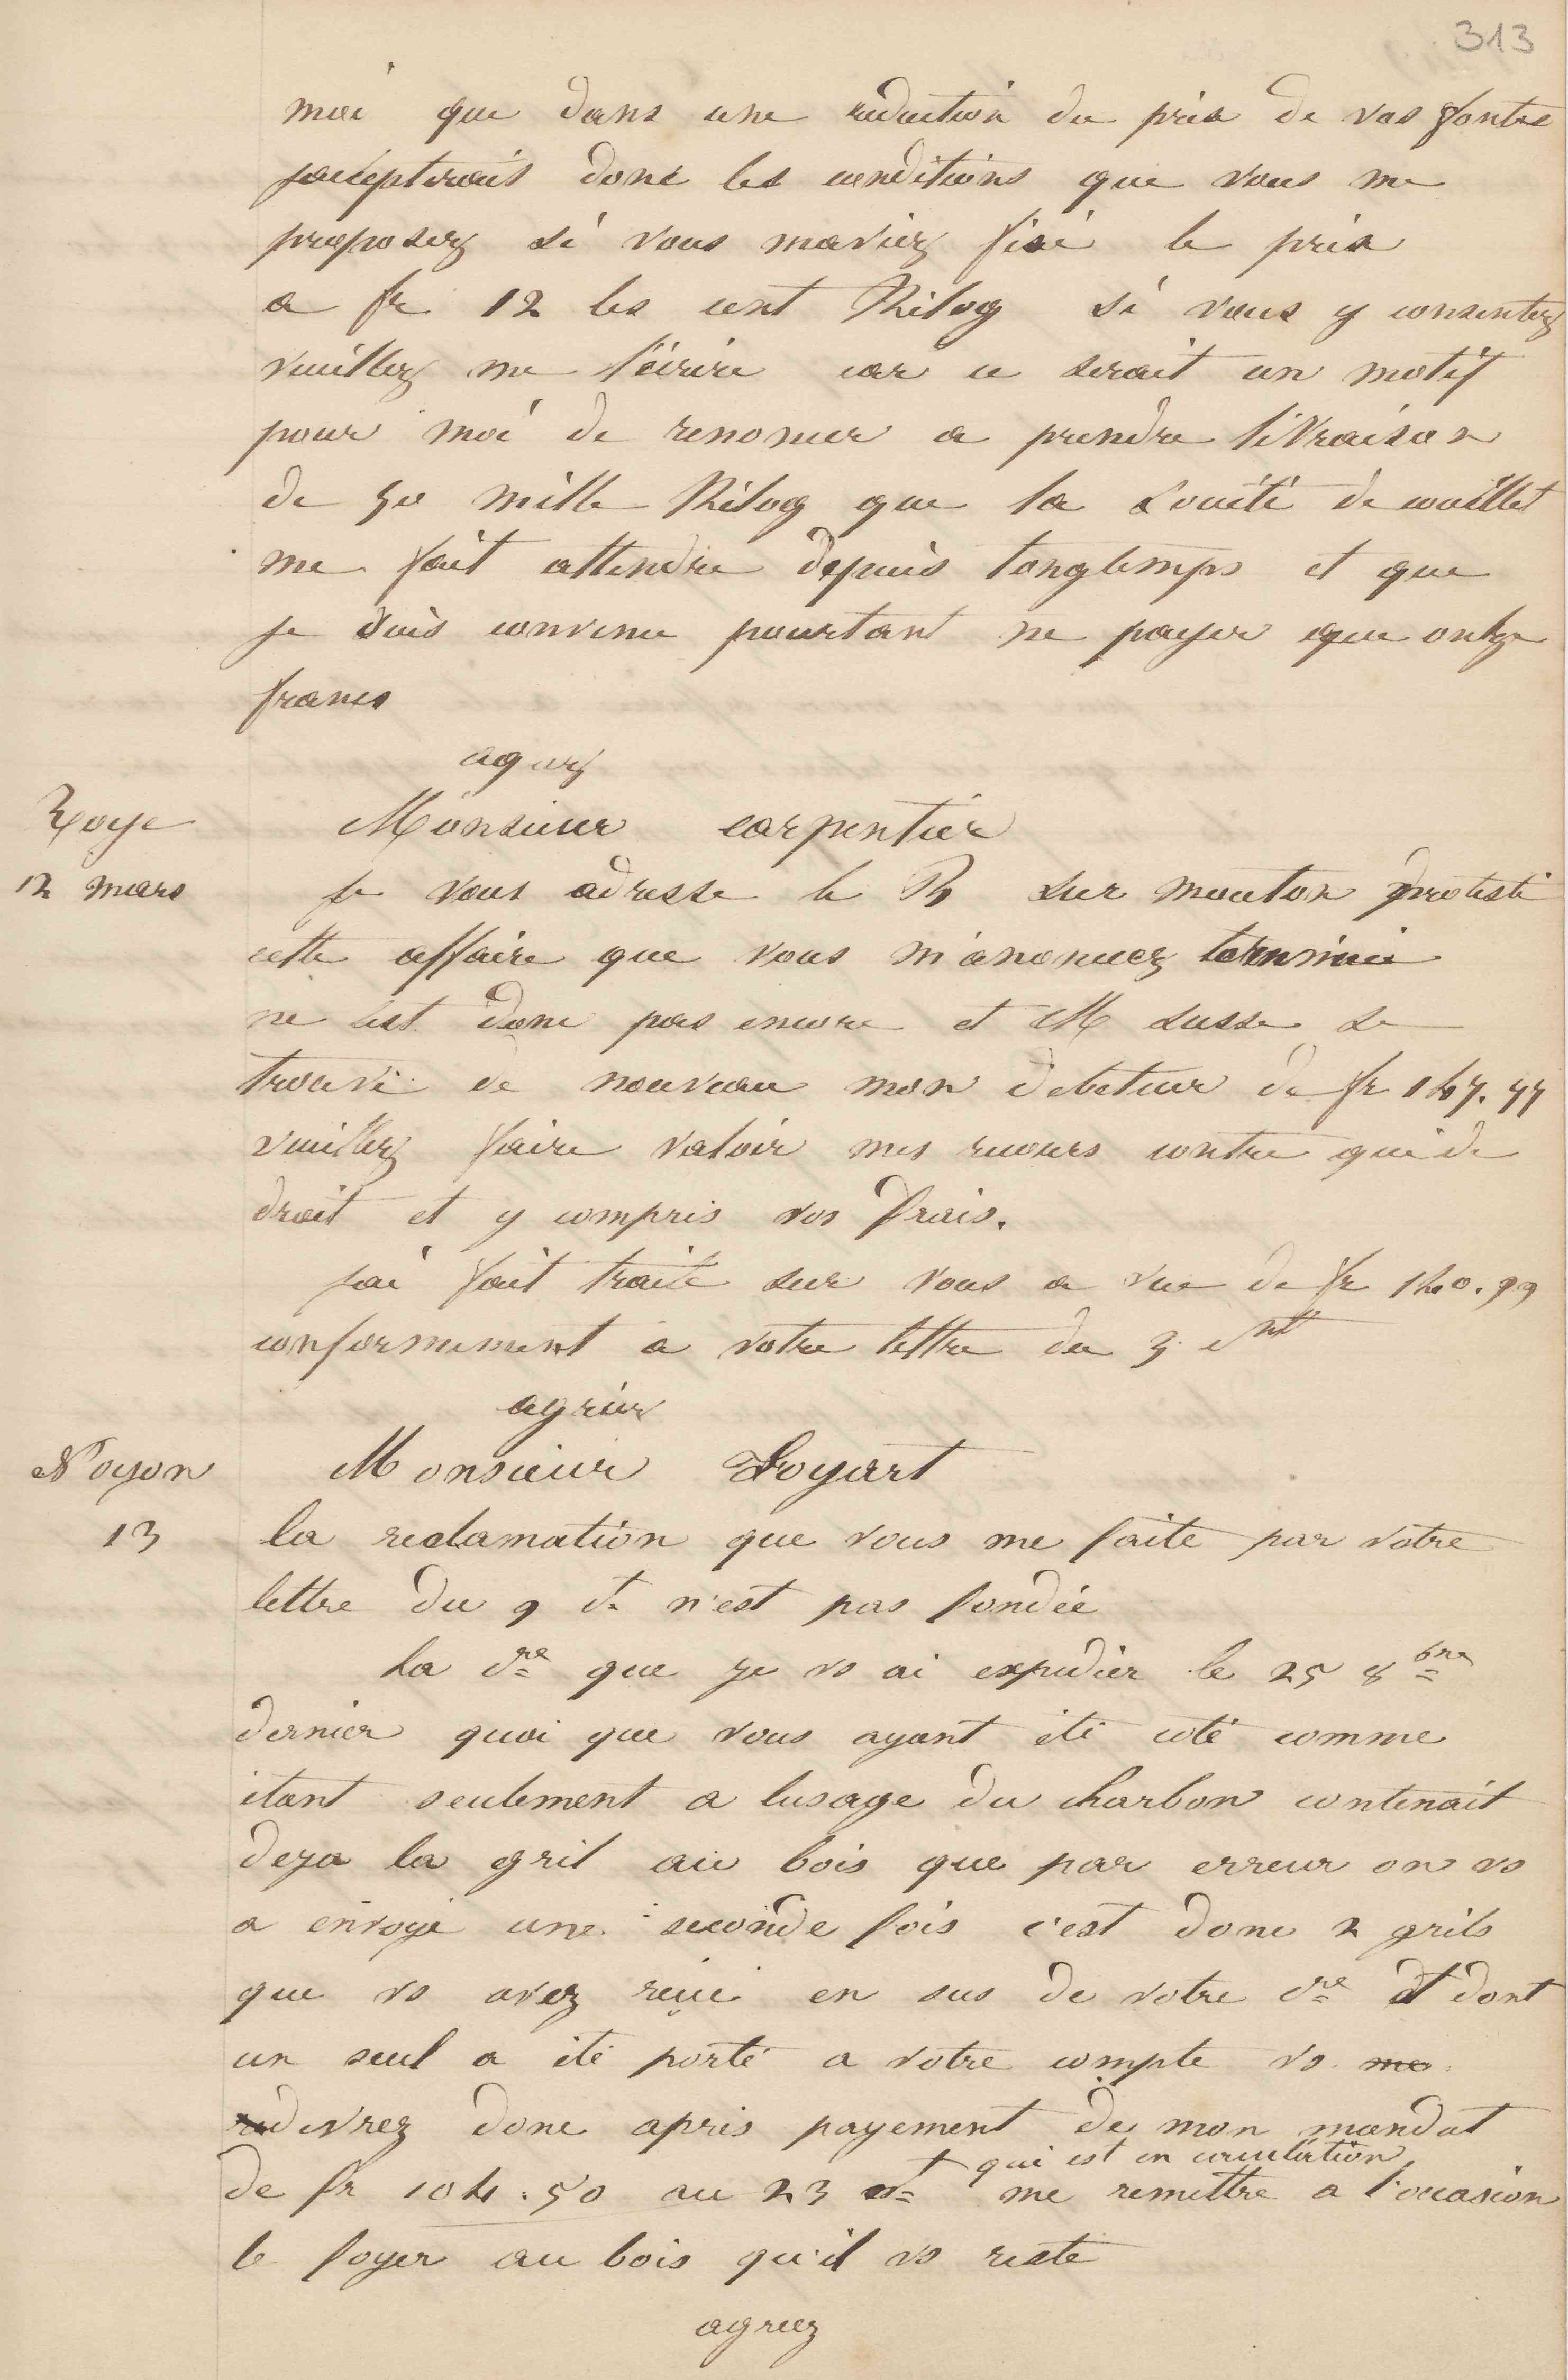 313
moi que dans une reduction du prix de vos fontes
jaccepterais donc les conditions que vous me
proposez si vous maviez fixé le prix
a fr 12 les cent Kilog si vous y consentez
veuillez me l'écrire car ce serait un motif
pour moi de renoncer a prendre livraison
de 50 mille Kilog que la Société de couillet
me fait attendre depuis longtemps et que
je suis convenu pourtant ne payer que onze
francs
agrez
Roye
Monsieur Carpentier
12 mars
je vous adresse le Bt sur mouton protesté
cette affaire que vous m'anoncez terminée
ne lest donc pas encore et M Susse se
trouve de nouveau mon debeteur de fr 147.77
veuillez faire valoir mes recours contre qui de
droit et y compris vos frais.
jai fait traite sur vous a vue de fr 140.99
conformement a votre lettre du 3 ct
agréez
Noyon
Monsieur Froyart
13
la reclamation que vous me faite par votre
lettre du 9 ct n'est pas fondée
la cre que je vs ai expedier le 25 8bre
dernier quoi que vous ayant été coté comme
étant seulement a lusage du charbon contenait
deja la gril au bois que par erreur on vs
a envoyé une seconde fois c'est donc 2 grils
que vs avez reçue en sus de votre cre et dont
un seul a été porté a votre compte vs me
redevrez donc apres payement de mon mandat
qui est en circulation
de fr 104.50 au 23 ct me remettre a l'occasion
le foyer au bois qu'il vs reste
agreez